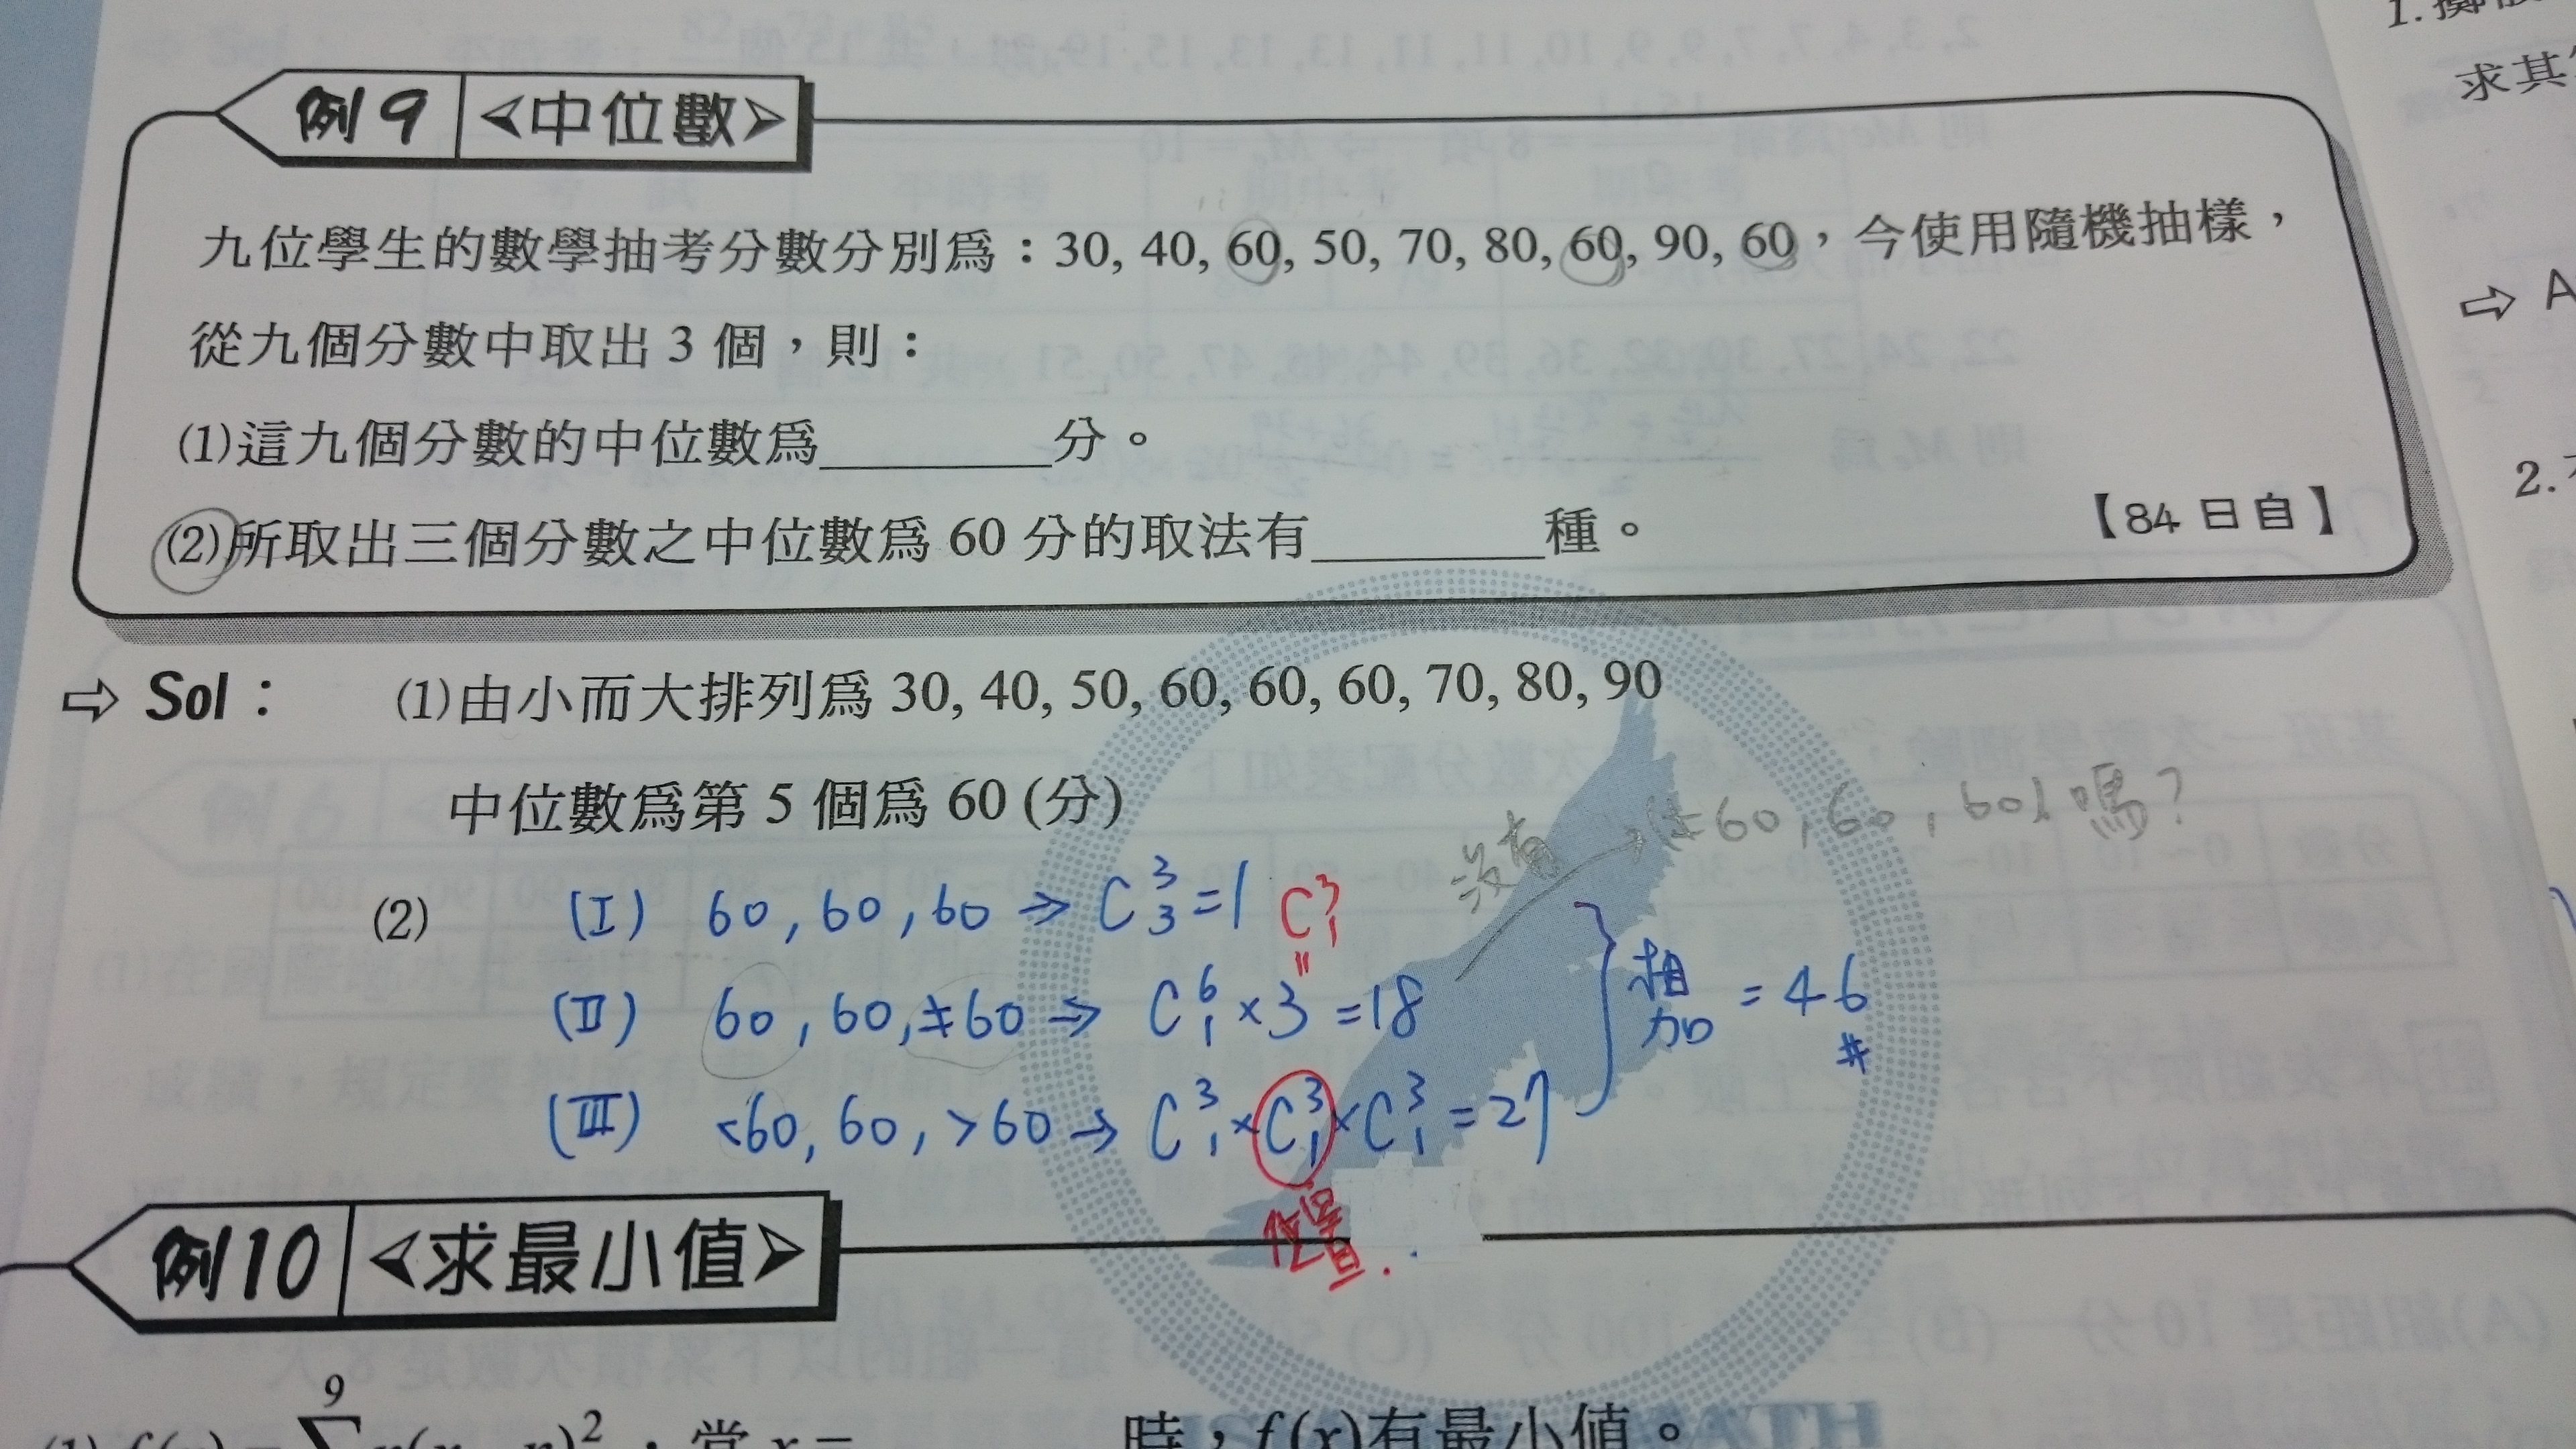 例9 <中位數>
九位學生的數學抽考分數分別為：30, 40, 60, 50, 70, 80, 60, 90, 60，今使用隨機抽樣，
從九個分數中取出 3 個，則：
(1)這九個分數的中位數為________分。
(2)所取出三個分數之中位數為 60 分的取法有________種。 【84 日自】
⇨ Sol： (1)由小而大排列為 30, 40, 50, 60, 60, 60, 70, 80, 90
中位數為第 5 個為 60 (分)
沒有 → (≠60, 60, 60) 嗎？
(2) (I) 60, 60, 60 → C³₃=1 C³₁
(II) 60, 60, ≠60 → C⁶₁×3 =18
(III) <60, 60, >60 → C³₁×C³₁×C³₁=27
相加 = 46 #
位置.
例10 <求最小值>
時，f(x)有最小值。
1.
求其
⇨ A
2.